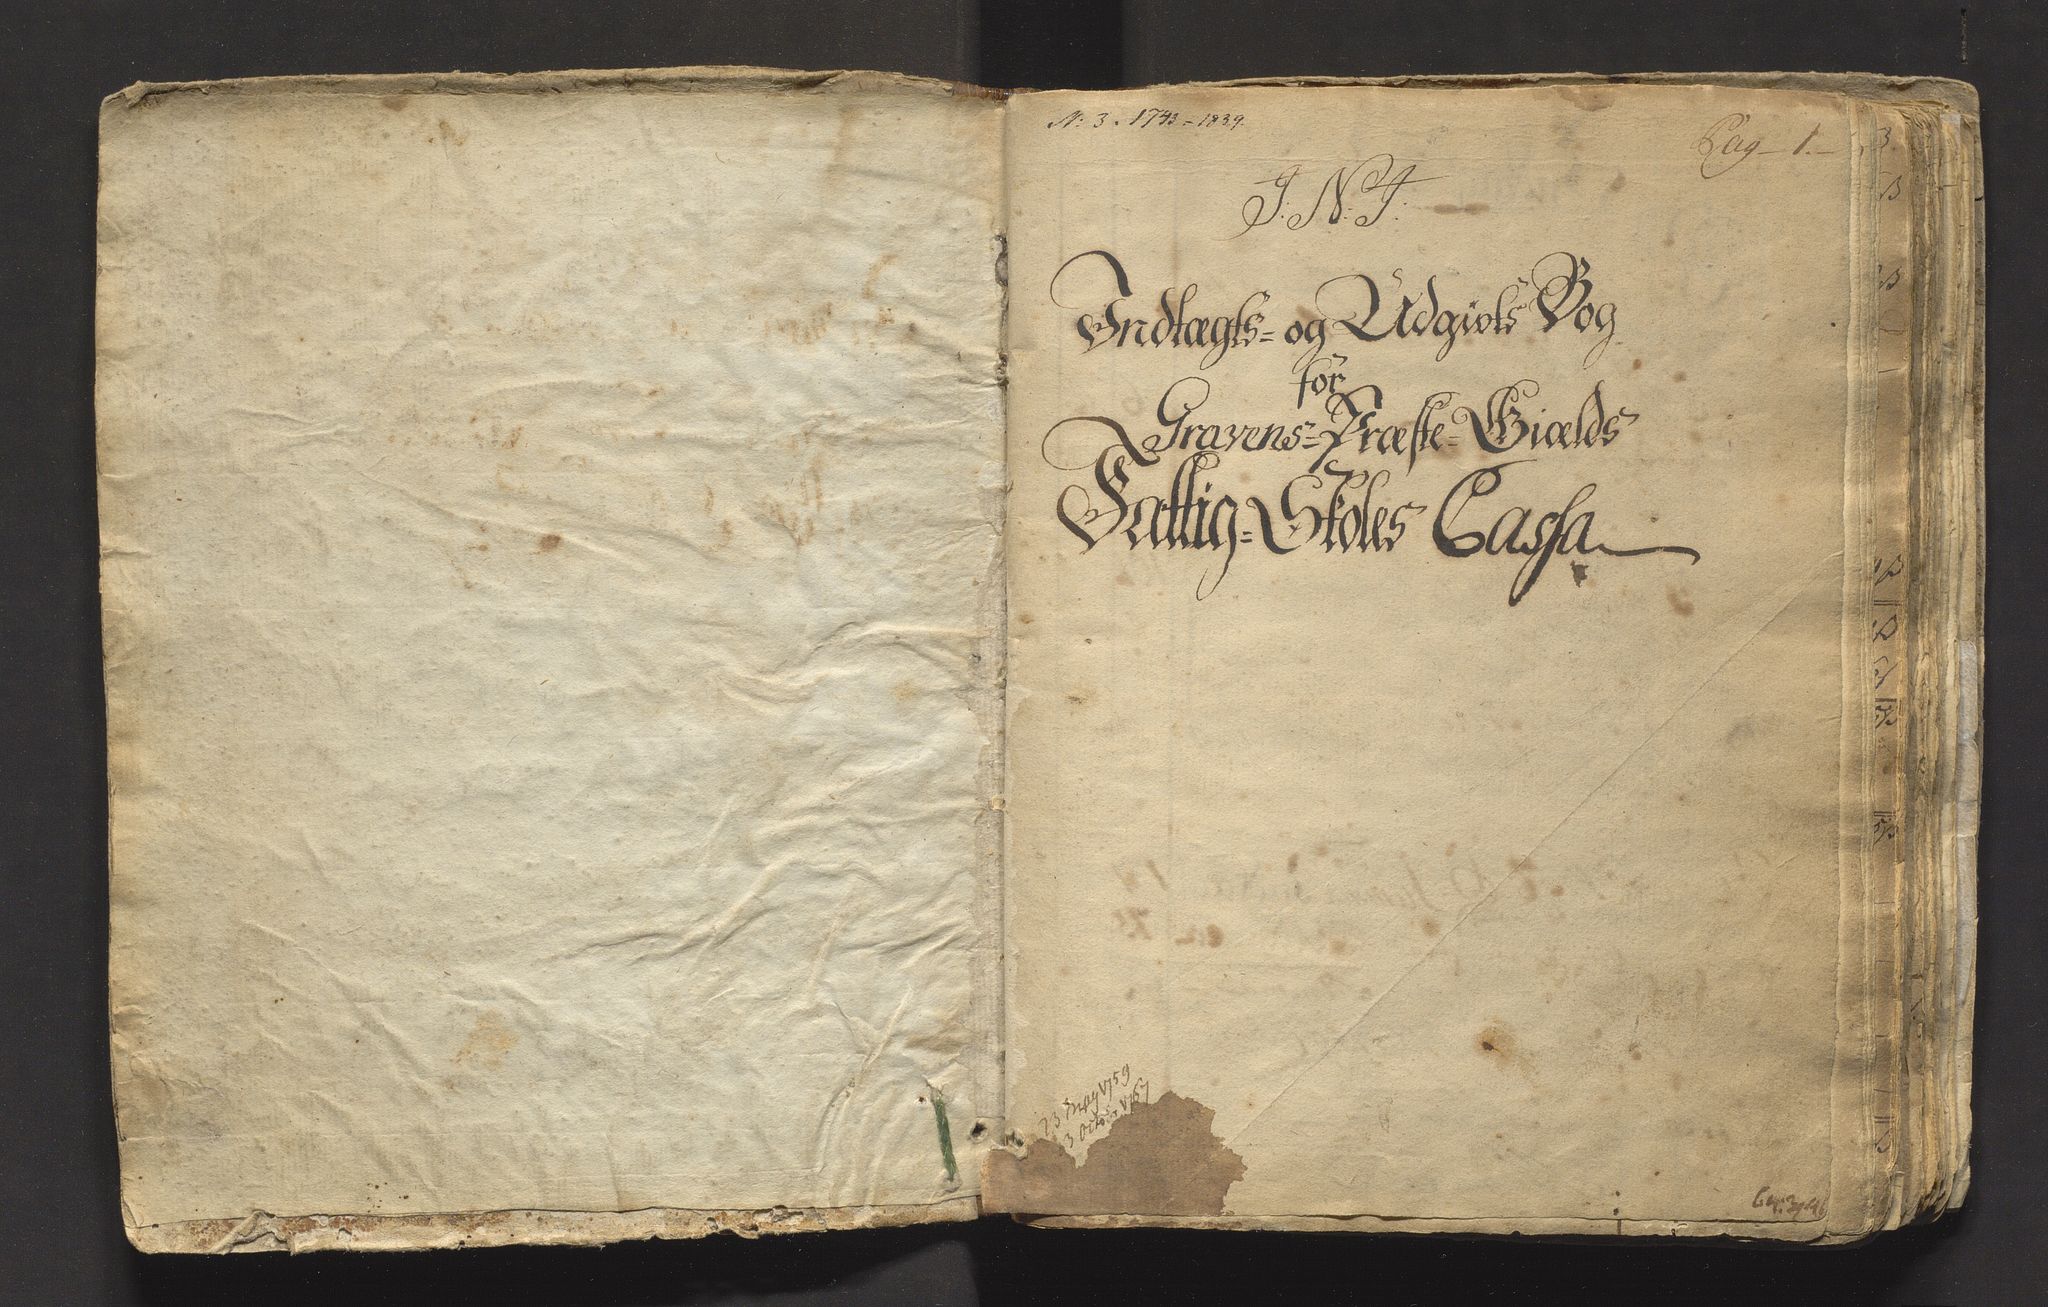 N: 3. 1743-1839.
Pag-1.-
J. N. J.
Indtægts- og Udgivts Bog
for
Gravens-Præste-Gields
Fattig-Skoles Cassa
23 May 1759
3 Octobr 1757